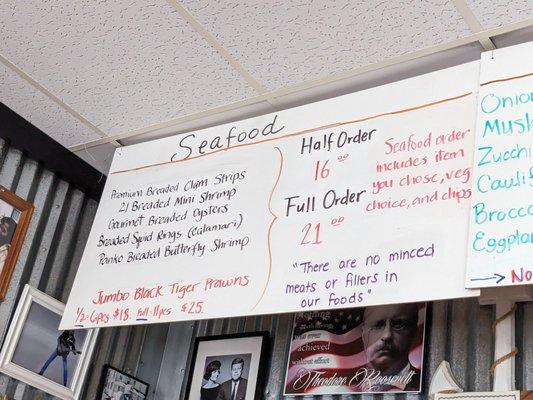 Seafood
Premium Breaded Clam Strips
21 Breaded Mini Shrimp
Gourmet Breaded Oysters
Breaded Squid Rings (calamari)
Panko Breaded Butterfly Shrimp
Jumbo Black Tiger Prawns
1/2 = 6pcs $18. Full = 11pcs $25.
Half Order
16 00
Full Order
21 00
Seafood order
includes item
you chose, veg
choice, and chips
"There are no minced
meats or fillers in
our foods"
Onion
Mush
Zucchi
Caulif
Brocco
Eggplan
→ No
Nothing
achieved
without effort
Theodore Roosevelt